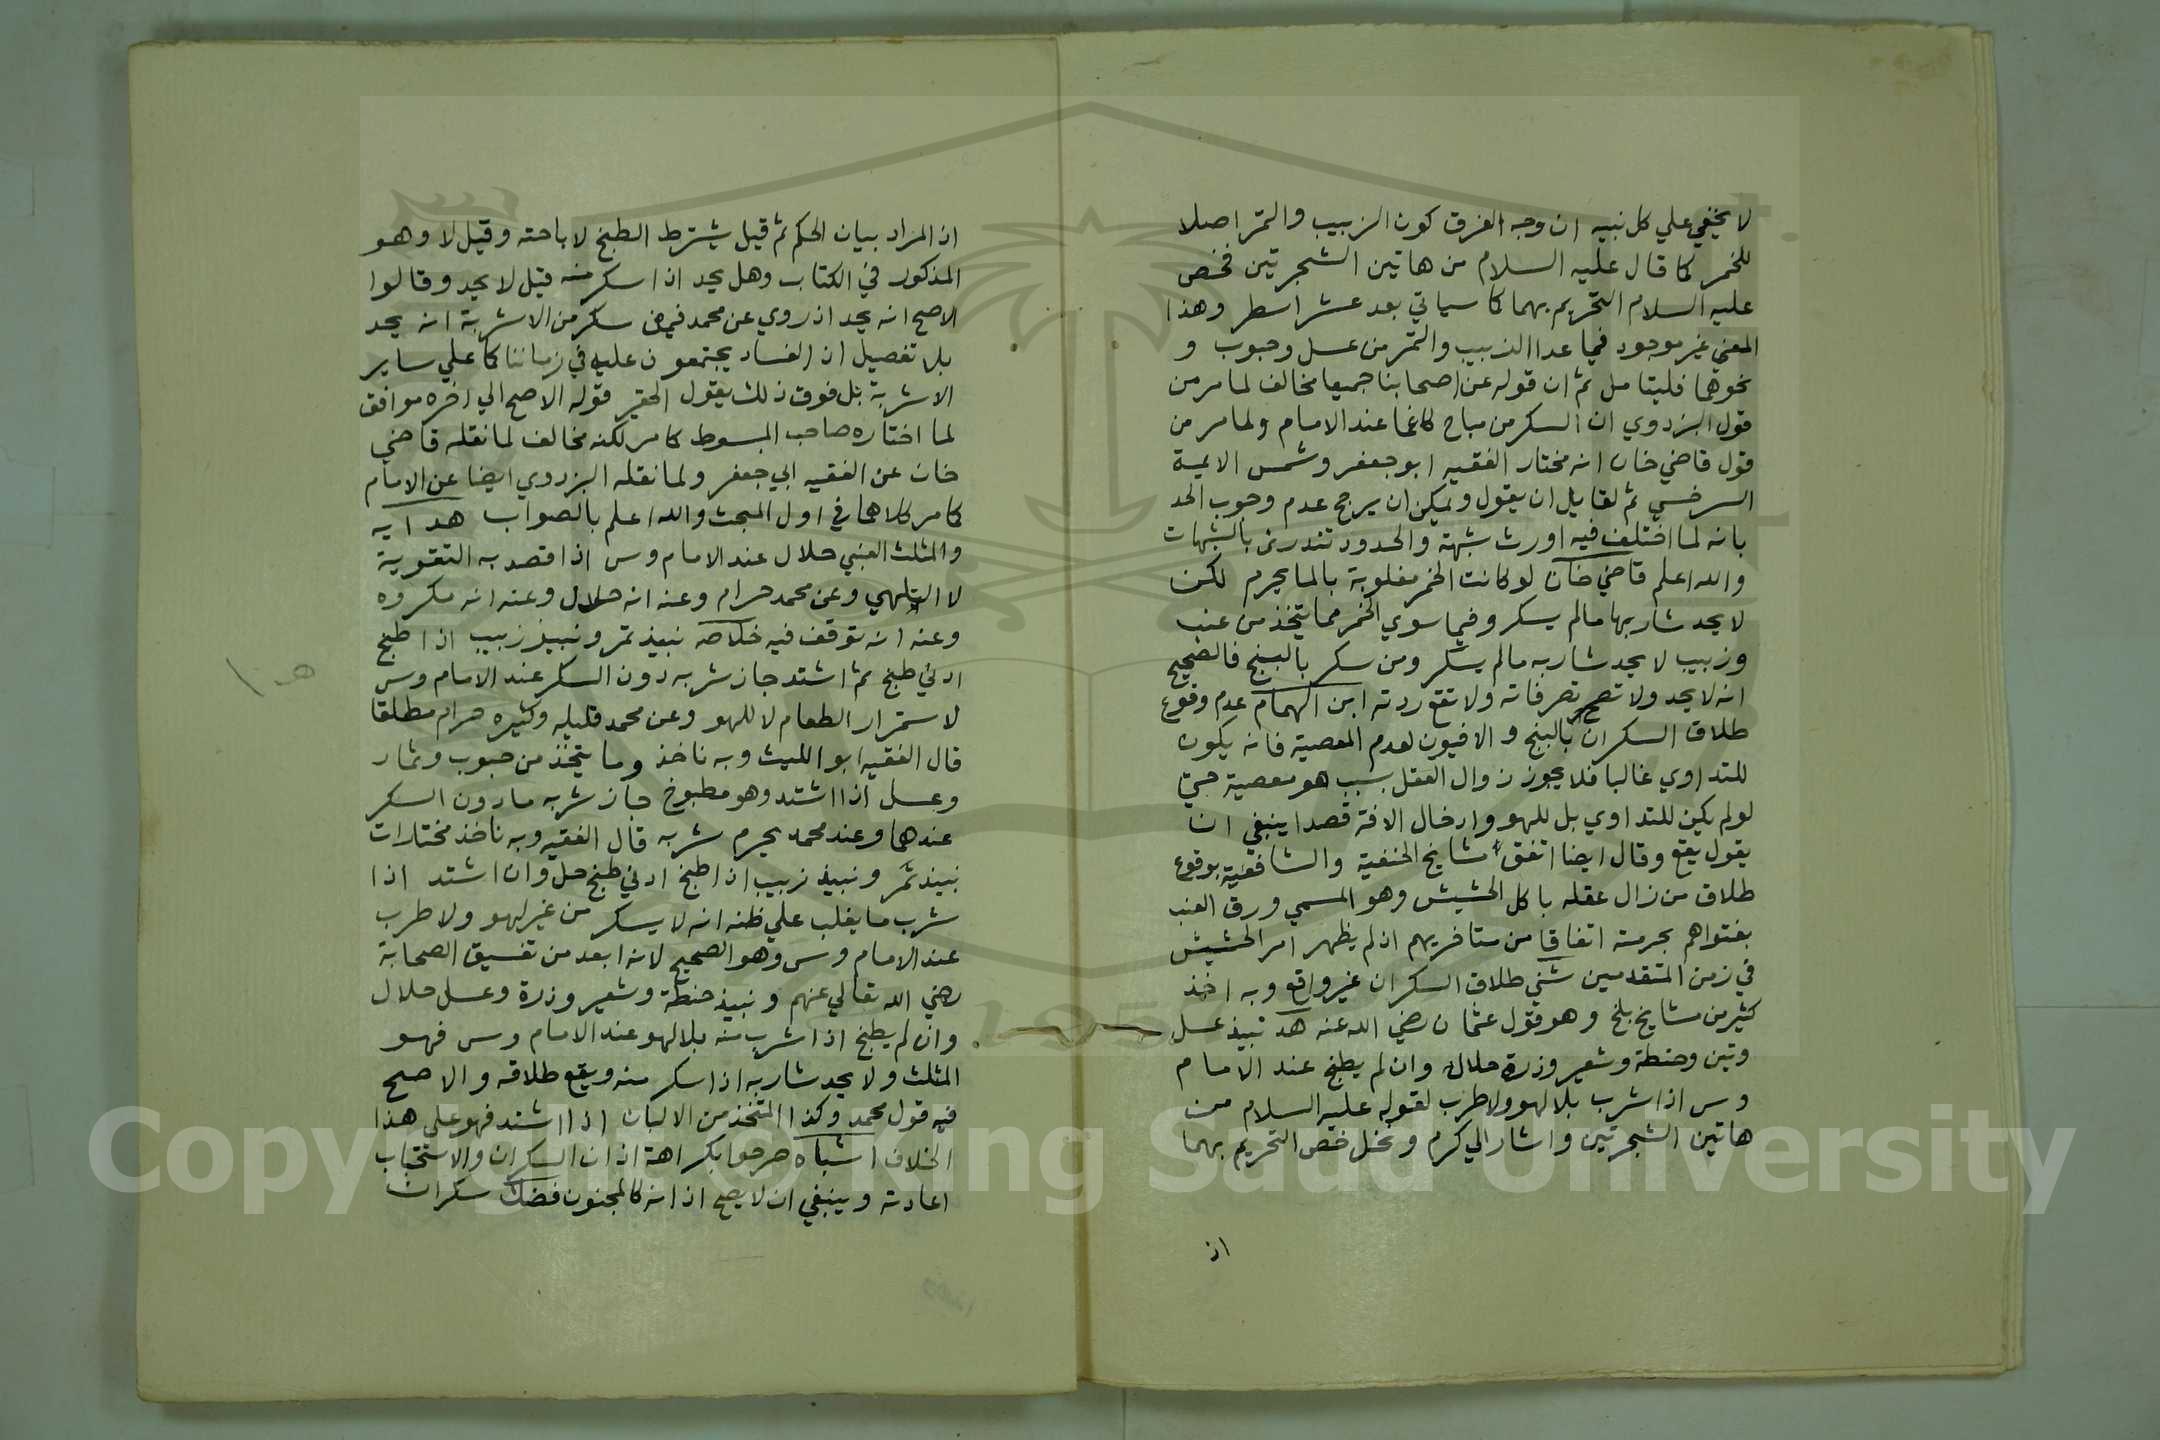 لا يخفي علي كل نبيه ان وجه الفرق كون الزبيب والتمر اصلا
للخمر كما قال عليه السلام من هاتين الشجرتين فخص
عليه السلام التحريم بهما كما سياتي بعد عشر اسطر وهذا
المعني غير موجود فيما عدا الزبيب والتمر من عسل وحبوب و
نحوهما فليتامل ثم ان قوله عن اصحابنا جميعا مخالف لما مر من
قول البزدوي ان السكر من مباح كاغما عند الامام ولما مر من
قول قاضي خان انه مختار الفقيه ابو جعفر وشمس الايمة
السرخسي ثم لقايل ان يقول ويمكن ان يرجح عدم وجوب الحد
بانه لما اختلف فيه اورث شبهة والحدود تندري بالشبهات
والله اعلم قاضي خان لو كانت الخمر مغلوبة بالما يحرم لكن
لا يحد شاربها مالم يسكر وفيما سوي الخمر مما يتخذ من عنب
وزبيب لا يحد شاربه مالم يسكر ومن سكر بالبنج فالصحيح
انه لا يحد ولا تصح تصرفاته ولا تقع ردته ابن الهمام عدم وقوع
طلاق السكران بالبنج والافيون لعدم المعصية فانه يكون
للتداوي غالبا فلا يجوز زوال العقل بسبب هو معصية حتي
لو لم يكن للتداوي بل للهو وادخال الافة قصدا ينبغي ان
يقول يقع وقال ايضا اتفق مشايخ الحنفية والشافعية بوقوع
طلاق من زال عقله باكل الحشيش وهو المسمي ورق القنب
بفتواهم بحرمته اتفاقا من متاخريهم اذ لم يظهر امر الحشيش
في زمن المتقدمين شني طلاق السكران غير واقع وبه اخذ
كثير من مشايخ بلخ وهو قول عثمان رضي الله عنه هد نبيذ عسل
وتين وحنطة وشعير وذرة حلال وان لم يطبخ عند الامام
وس اذا شرب بلا لهو ولا طرب لقوله عليه السلام من
هاتين الشجرتين واشار الي كرم ونخل خص التحريم بهما
اذ
اذ المراد بيان الحكم ثم قيل يشترط الطبخ لاباحته وقيل لا وهو
المذكور في الكتاب وهل يحد اذا سكر منه قيل لا يحد وقالوا
الاصح انه يحد اذ روي عن محمد فيمن سكر من الاشربة انه يحد
بلا تفصيل ان الفساد يجتمعون عليه في زماننا كما علي ساير
الاشربة بل فوق ذلك يقول الحقير قوله الاصح الي اخره موافق
لما اختاره صاحب المبسوط كما مر لكنه مخالف لما نقله قاضي
خان عن الفقيه ابي جعفر ولما نقله البزدوي ايضا عن الامام
كما مر كلاهما في اول المبحث والله اعلم بالصواب هداية
والمثلث العنبي حلال عند الامام وس اذا قصد به التقوية
لا التلهي وعن محمد حرام وعنه انه حلال وعنه انه مكروه
وعنه انه توقف فيه خلاصه نبيذ تمر ونبيذ زبيب اذا طبخ
ادني طبخ ثم اشتد جاز شربه دون السكر عند الامام وس
لاستمرار الطعام لا للهو وعن محمد قليله وكثيره حرام مطلقا
قال الفقيه ابو الليث وبه ناخذ وما يتخذ من حبوب وثمار
وعسل اذا اشتد وهو مطبوخ جاز شربه مادون السكر
عندهما وعند محمد يحرم شربه قال الفقيه وبه ناخذ مختارات
نبيذ تمر ونبيذ زبيب اذا طبخ ادني طبخ حل وان اشتد اذا
شرب ما يغلب علي ظنه انه لا يسكر من غير لهو ولا طرب
عند الامام وس وهو الصحيح لانه ابعد من تفسيق الصحابة
رضي الله تعالي عنهم ونبيذ حنطة وشعير وذرة وعسل حلال
وان لم يطبخ اذا شرب منه بلا لهو عند الامام وس فهو
المثلث ولا يحد شاربه اذا سكر منه ويقع طلاقه والاصح
فيه قول محمد وكذا المتخذ من الالبان اذا اشتد فهو علي هذا
الخلاف اشباه صرحوا بكراهة اذان السكران والاستحباب
اعادته وينبغي ان لا يصح اذانه كالمجنون فصك سكران
Copyright © King Saud University
1957